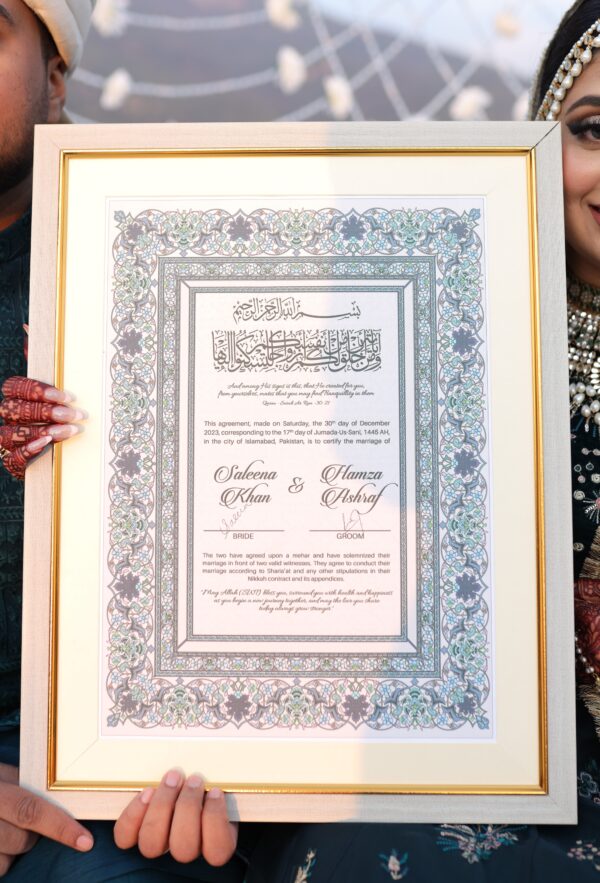 بسم الله الرحمن الرحيم
ومن آياته أن خلق لكم من أنفسكم أزواجا لتسكنوا إليها
And among His signs is this, that He created for you,
from yourselves, mates that you may find Tranquility in them
Quran - Surah Ar Rum -30:21
This agreement, made on Saturday, the 30th day of December
2023, corresponding to the 17th day of Jumada-Us-Sani, 1445 AH,
in the city of Islamabad, Pakistan, is to certify the marriage of
Saleena Khan & Hamza Ashraf
Saleena
BRIDE GROOM
The two have agreed upon a mehar and have solemnized their
marriage in front of two valid witnesses. They agree to conduct their
marriage according to Sharia'at and any other stipulations in their
Nikkah contract and its appendices.
"May Allah (SWT) bless you, surround you with health and happiness
as you begin a new journey together, and may the love you share
today always grow stronger."